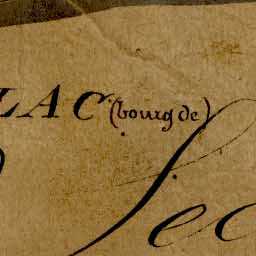 LAC (bourg de)
Sec